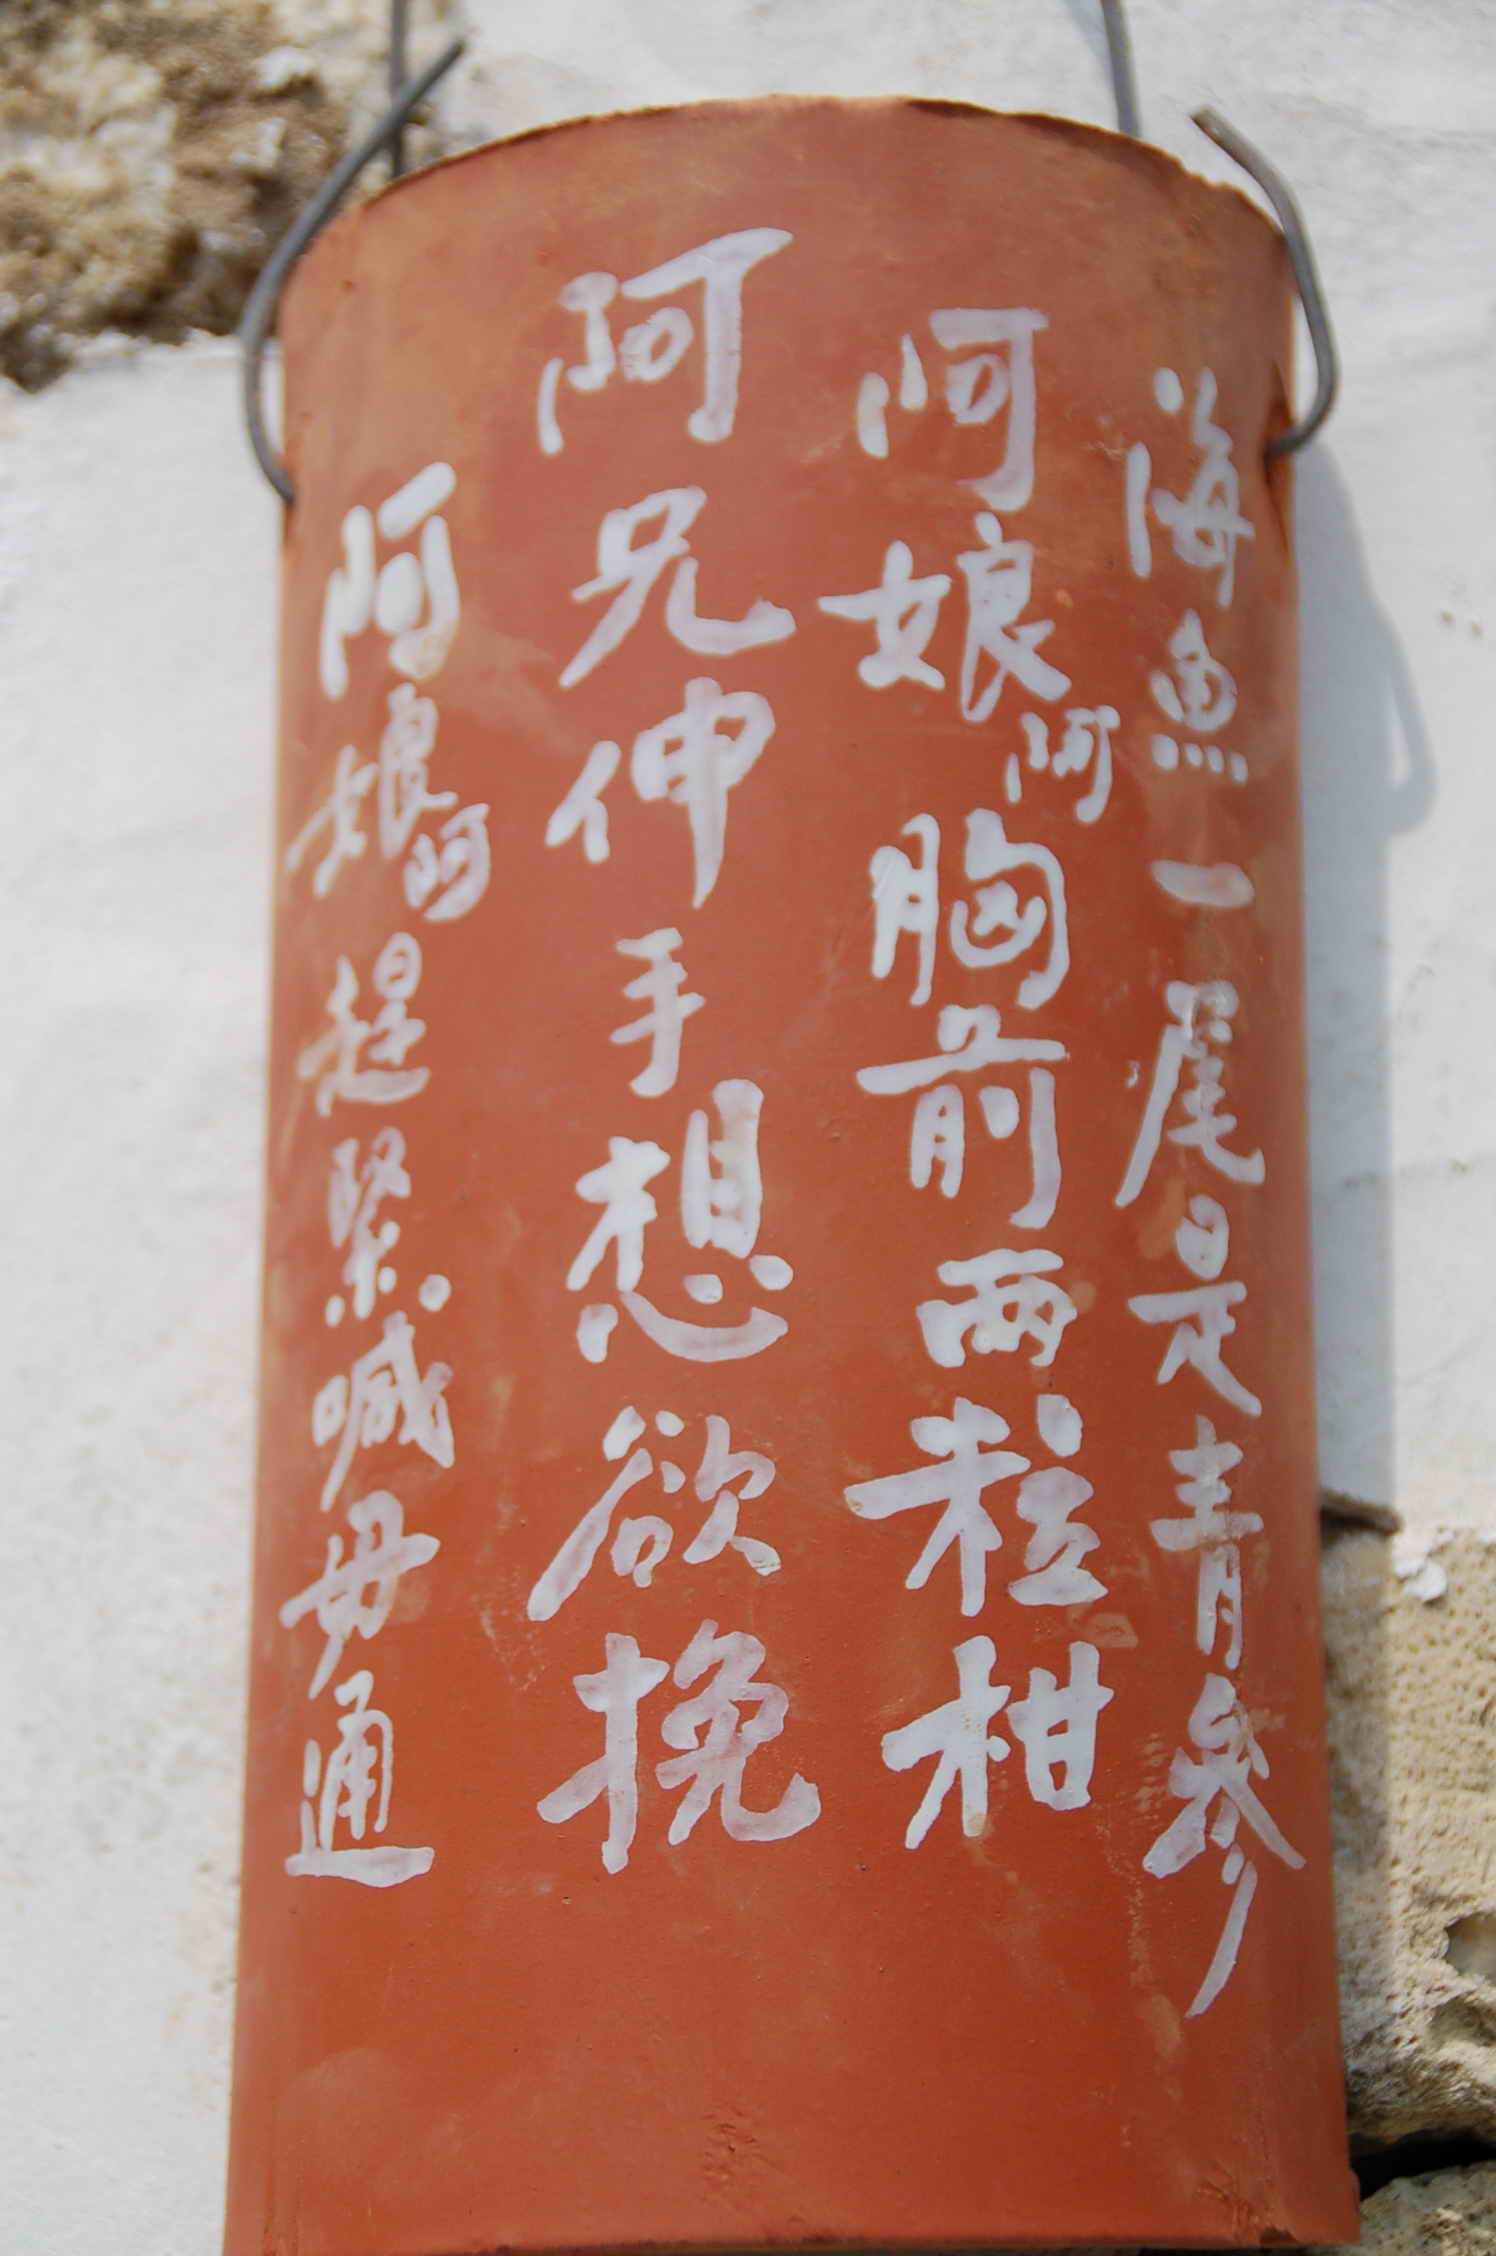 海魚一尾是青參
阿娘阿胸前兩粒柑
阿兄伸手想欲挽
阿娘阿趕緊喊毋通